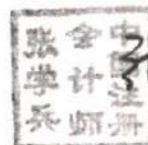 中国注册
会计师
张学兵